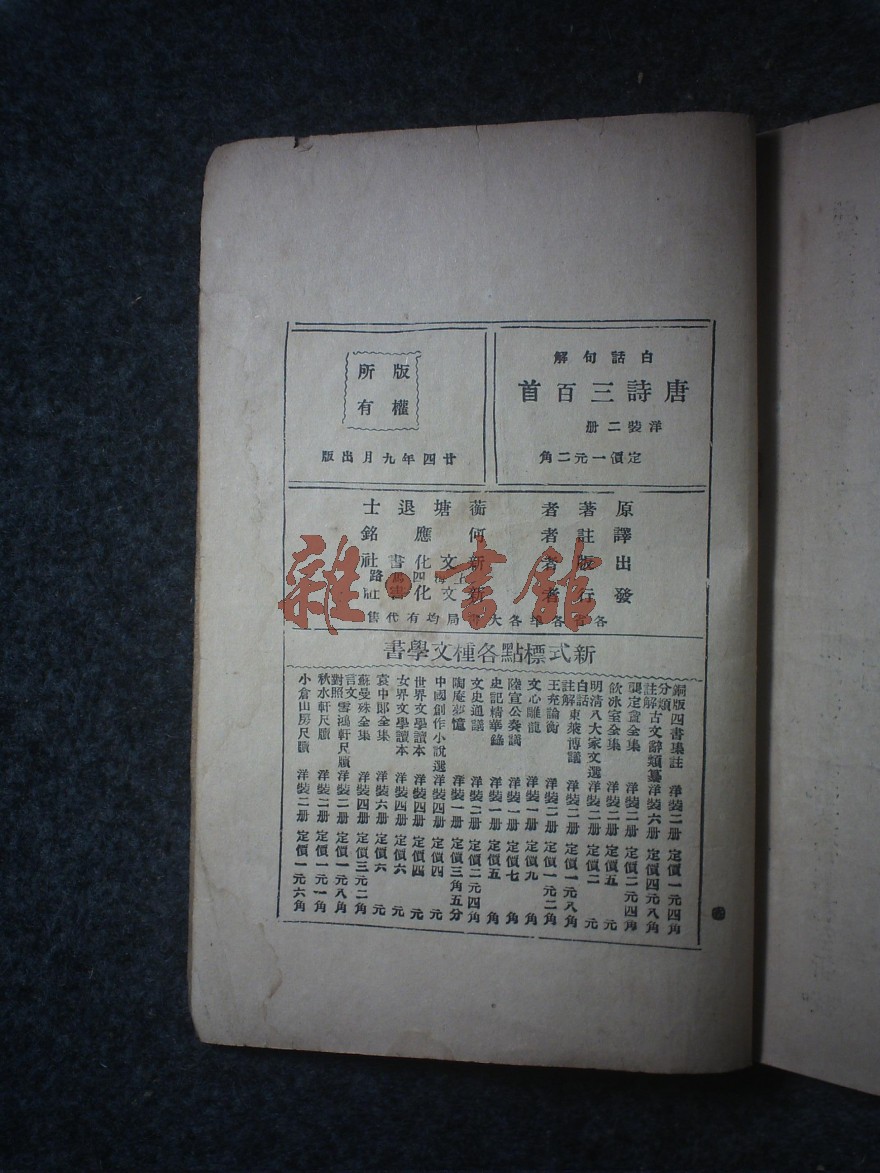 白話句解
唐詩三百首
洋裝二册
定價一元二角
版權
所有
廿四年九月出版
原著者 蘅塘退士
譯註者 何應銘
出版者 新文化書社
上海四馬路
發行者 新文化書社
各省各埠各大書局均有代售
新式標點各種文學書
銅版四書集註 洋裝二册 定價一元四角
分類註解古文辭類纂 洋裝六册 定價四元八角
龔定盦全集 洋裝二册 定價二元四角
飲冰室全集 洋裝二册 定價五元
明清八大家文選 洋裝二册 定價二元
白話註解東萊博議 洋裝二册 定價一元八角
王充論衡 洋裝二册 定價一元二角
文心雕龍 洋裝一册 定價九角
陸宣公奏議 洋裝一册 定價七角
史記精華錄 洋裝一册 定價五角
文史通議 洋裝二册 定價二元四角
陶庵夢憶 洋裝一册 定價三角五分
中國創作小說選 洋裝四册 定價四元
世界文學讀本 洋裝四册 定價四元
女界文學讀本 洋裝四册 定價六元
袁中郎全集 洋裝六册 定價六元
蘇曼殊全集 洋裝四册 定價三元二角
言文對照雪鴻軒尺牘 洋裝二册 定價一元八角
秋水軒尺牘 洋裝二册 定價一元一角
小倉山房尺牘 洋裝二册 定價一元六角
雜·書館